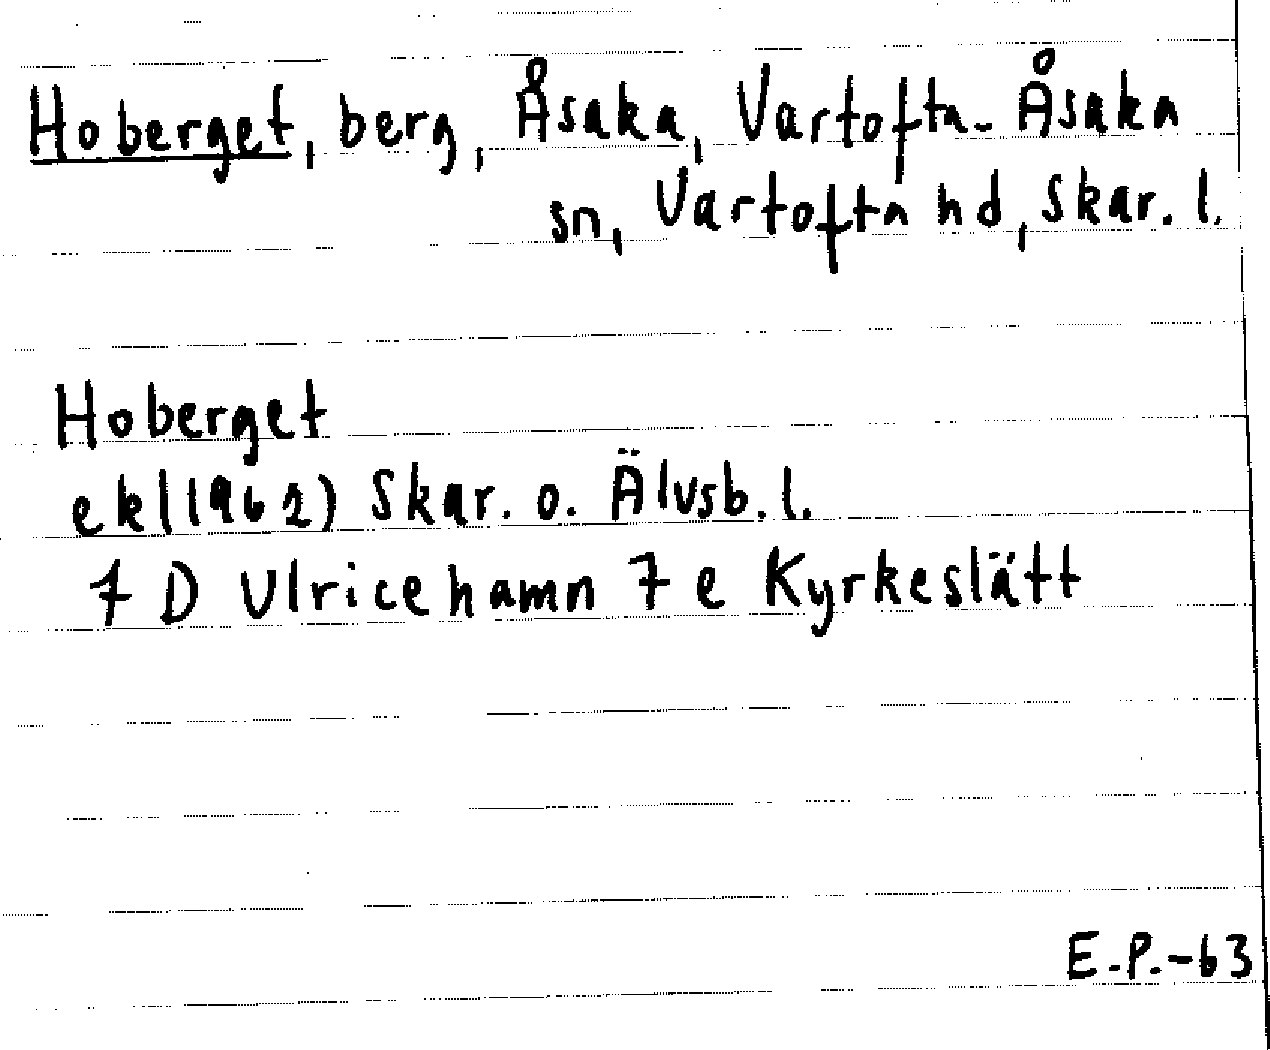 Hoberget, berg, Åsaka, Vartofta-Åsaka
sn, Vartofta hd, Skar. l.
Hoberget
ek(1962) Skar. o. Älvsb. l.
7 D Ulricehamn 7 e Kyrkeslätt
E.P.-63